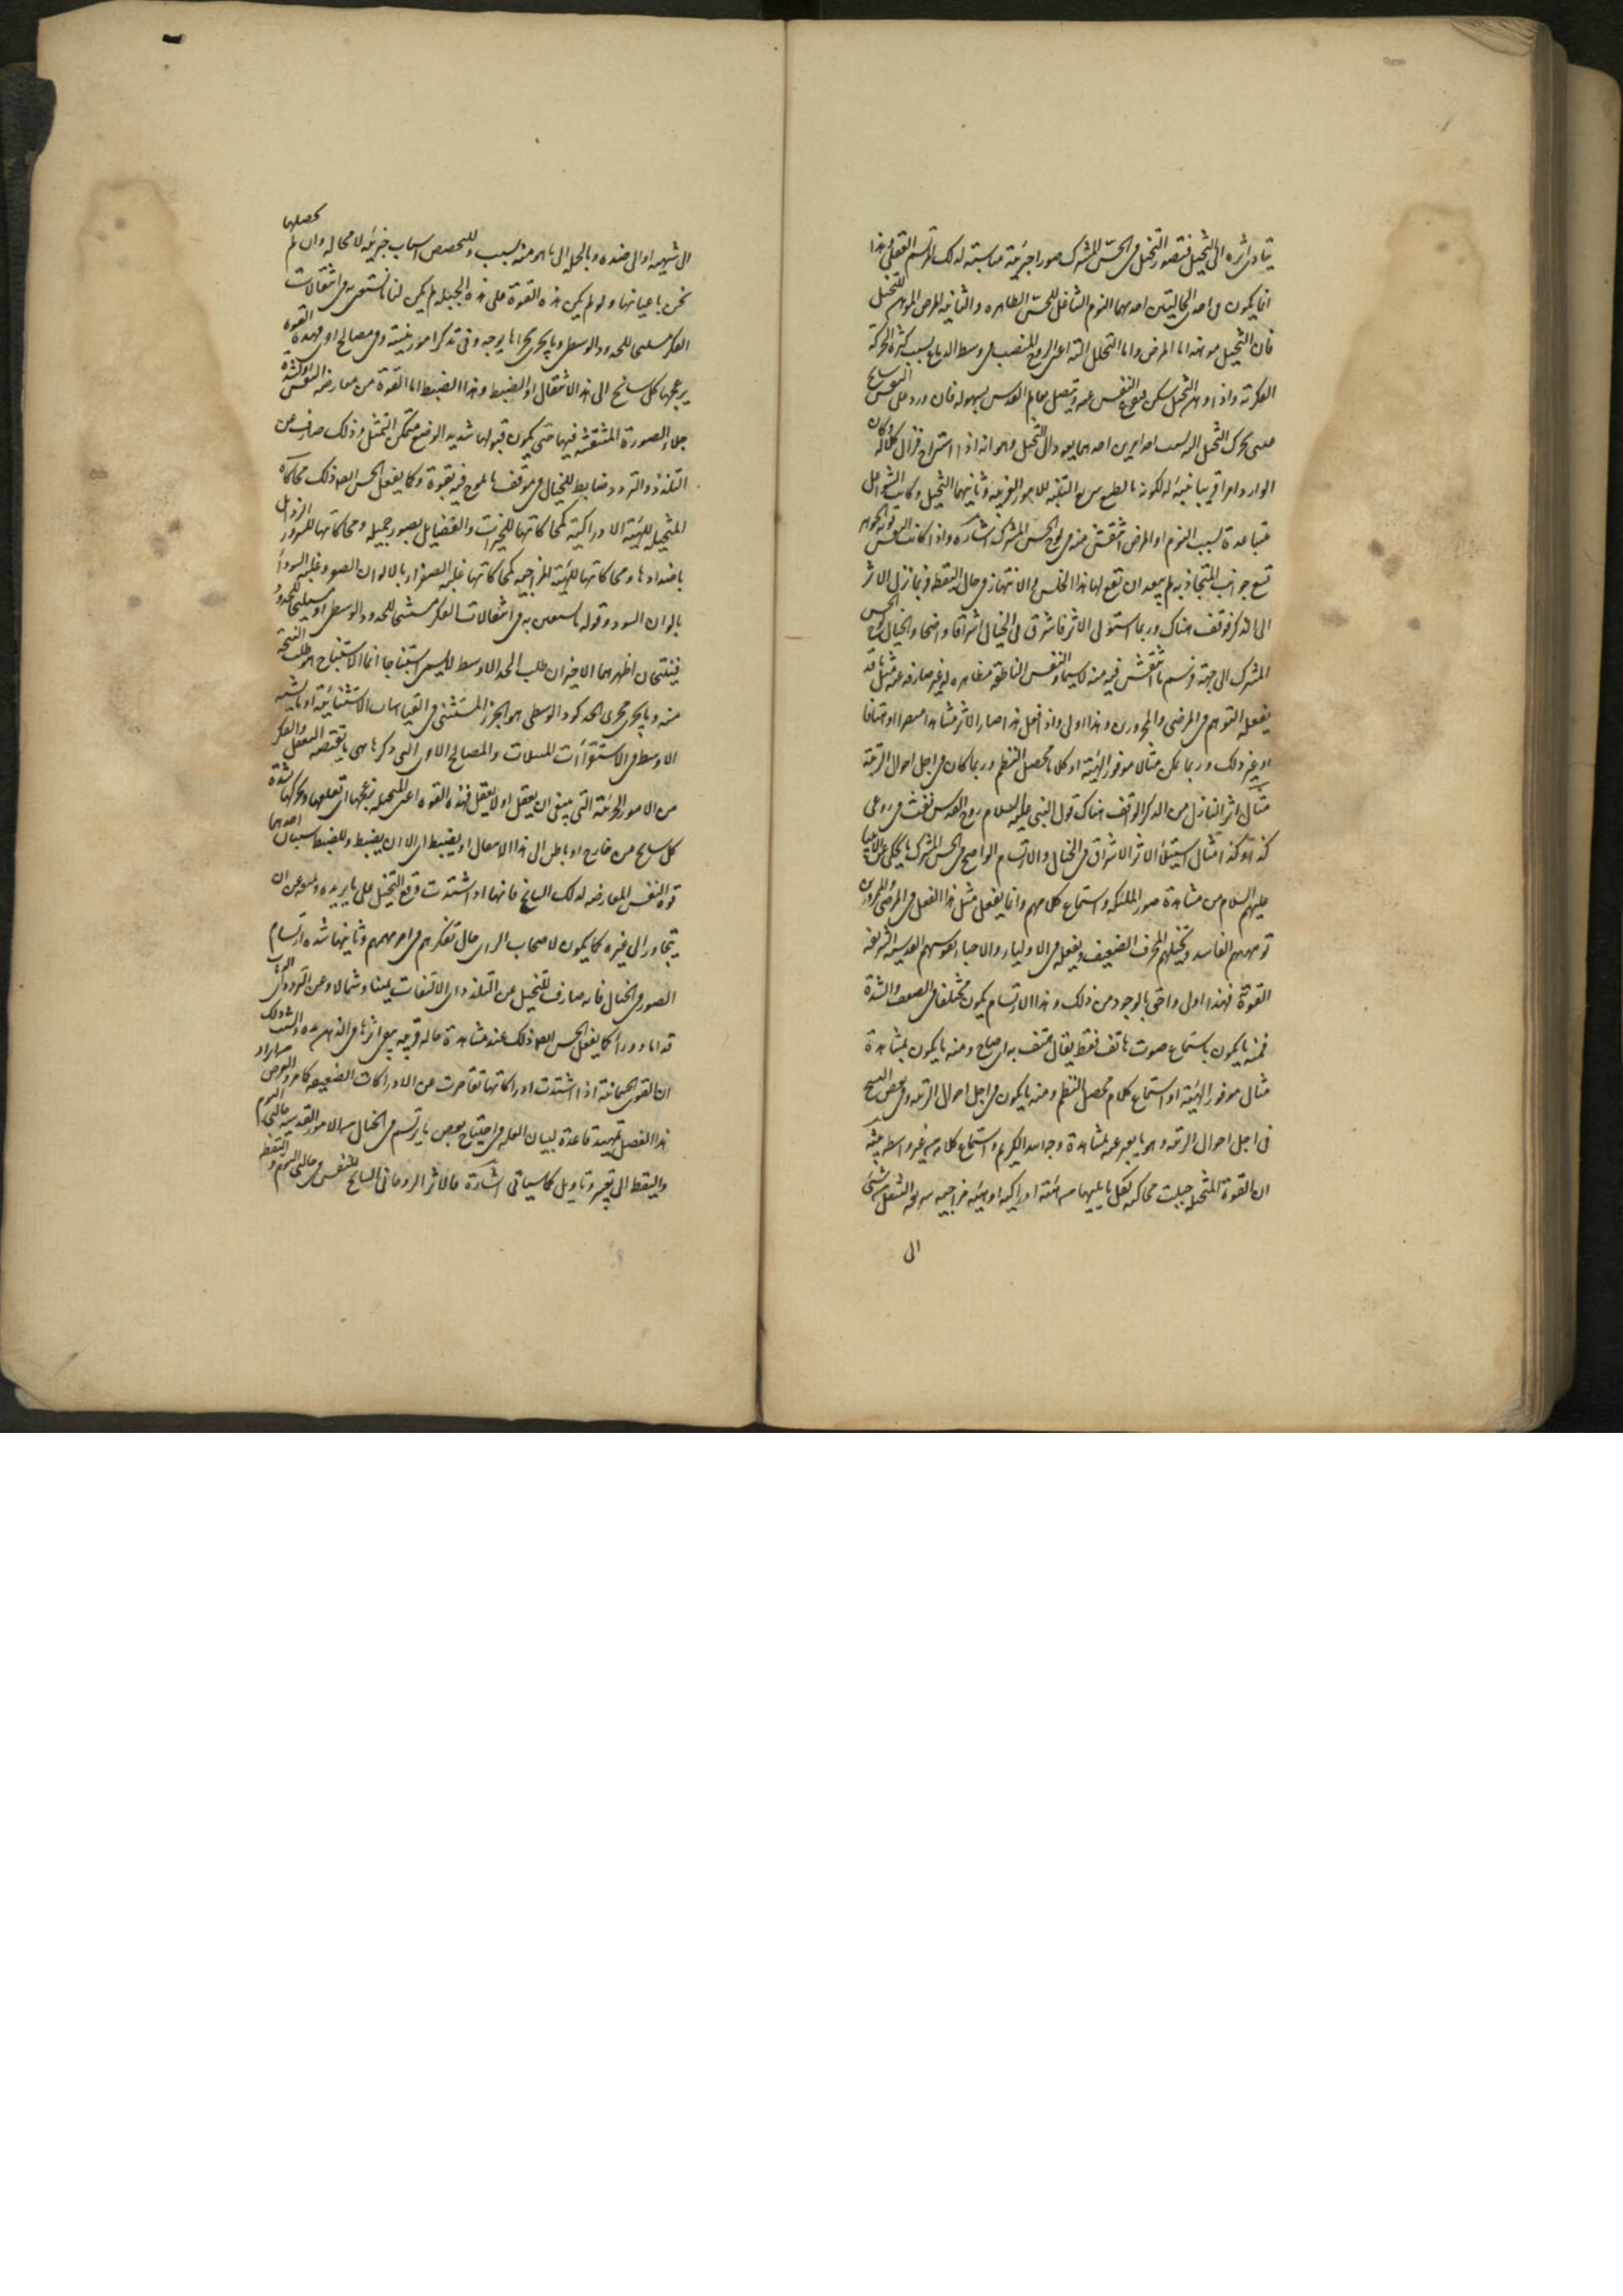 يتادى اثره الى التخيل فيصور التخيل فى الحس المشترك صورا جزئية مناسبة لذلك المرتسم العقلى وهذا
انما يكون فى احدى الحالتين احديهما النوم الشاغل للحس الظاهر والثانية المرض الموهن للتخيل
فان التخيل يوهنه اما المرض واما التحلل آلته اعنى الروح المنصب فى وسط الدماغ بسبب كثرة الحركة
الفكرية واذا وهن التخيل سكن فيفرغ النفس عنه ويتصل بعالم القدس بسهولة فان ورد على النفس سانح
غيبى تحرك التخيل اليه بسبب احد امرين احدهما يعود الى التخيل وهو انه اذا استراح فزال كلاله وكان
الوارد امرا غريبا منبها لكونه بالطبع سريع التنبه للامور الغريبة وثانيهما التخيل وكانت الشواغل
متباعدة بسبب النوم او المرض انتقش منه فى لوح الحس المشترك اشارة واذا كانت النفس قوية الجوهر
تسع جوانب المتجاذبة لم يبعد ان تقع لها هذا الخلس والانتهاز فى حال اليقظة فربما نزل الاثر
الى الذكر فوقف هناك وربما استولى الاثر فاشرق فى الخيال اشراقا واضحا والخيال لوح الحس
المشترك الى جهته فرسم ما انتقش فيه منه لا سيما والنفس الناطقة مظاهرة له غير صارفة عنه مثل ما قد
يفعله التوهم فى المرضى والممرورين وهذا اولى واذا فعل هذا صار الاثر مشاهدا مبصرا او هتافا
او غير ذلك وربما تمكن مثالا موفور الهيئة او كلاما محصل النظم وربما كان فى اجل احوال الزينة
مثال اثر النازل من الذكر الواقف هناك قول النبى عليه السلام روح القدس نفث فى روعى
كذا وكذا مثال استيلاء الاثر الاشراق فى الخيال والارتسام الواضح فى الحس المشترك ما يحكى عن الانبياء
عليهم السلام من مشاهدة صور الملئكة واستماع كلامهم وانما يفعل مثل هذا الفعل فى المرضى والممرورين
توهمهم الفاسد وتخيلهم المحرف الضعيف ويفعله فى الاولياء والاحباء نفوسهم القدسية الشريفة
القوية فهذا اولى واحق بالوجود من ذلك وهذا الارتسام يكون مختلفا فى الضعف والشدة
فمنه ما يكون باستماع صوت هاتف فقط يقال هتف به اى صاح ومنه ما يكون بمشاهدة
مثال موفور الهيئة او استماع كلام محصل النظم ومنه ما يكون فى اجل احوال الزينة وفى بعض النسخ
فى اجل احوال الزينة وهو ما يعبر عنه بمشاهدة وجه الله الكريم واستماع كلامه من غير واسطة تنبيه
ان القوة المتخيلة جبلت محاكية لكل ما يليها من هيئة ادراكية او هيئة مزاجية سريعة التنقل من شئ
الى
الى شبيهه او الى ضده وبالجملة الى ما هو منه بسبب وللتخصص اسباب جزئية لا محالة وان لم نحصلها
نحن باعيانها ولو لم يكن هذه القوة على هذه الجبلة لم يكن لنا ما نستعين به فى انتقالات
الفكر مستنتجا للحدود الوسطى وما يجرى مجراها بوجه وفى تذكر امور منسية وفى مصالح اخرى فهذه القوة
يزعجها كل سانح الى هذا الانتقال او الضبط وهذا الضبط اما لقوة من معارضة النفس او لشدة
جلاء الصورة المنتقشة فيها حتى يكون قبولها شديد الوضوح متمكن التمثل وذلك صارف عن
التلذذ والتردد ضابط للخيال فى موقف ما يلوح فيه بقوة وكما يفعل الحس ايضا ذلك محاكاة
المتخيلة للهيئة الادراكية كمحاكاتها للخيرات والفضايل بصور جميلة ومحاكاتها للشرور والرذايل
باضدادها ومحاكاتها للهيئة المزاجية كمحاكاتها غلبة الصفراء بالالوان الصفر وغلبة السوداء
بالوان السود وقوله ما نستعين به فى انتقالات الفكر مستنتجا للحدود الوسطى او مستنتجا للحدود
فينتجان اظهرهما الاخير ان طلب الحد الاوسط ليس استنتاجا انما الاستنتاج هو طلب النتيجة
منه وما يجرى مجرى الحدود الوسطى هو الجزء المستثنى فى القياسات الاستثنائية او ما يشبه
الاوسط فى الاستقراآت والتمثيلات والمصالح الاخرى التى ذكرها هى ما يقتضيه التعقل والفكر
من الامور الجزئية التى ينبغى ان يعقل او لا يعقل فهذه القوة اعنى المتخيلة يزعجها اى تقلعها ويحركها بشدة
كل سانح من خارج او باطن الى هذا الانتقال او يضبط اى الا ان يضبط وللضبط سببان احدهما
قوة النفس المعارضة لذلك السانح فانها اذا اشتدت وقع التخيل على ما يريده ومنعه عن ان
يتجاوز الى غيره كما يكون لاصحاب الراى حال تفكرهم فى امر مهمهم وثانيها شدة ارتسام
الصور فى الخيال فانه صارف للتخيل عن التلذذ اى الالتفات يمينا وشمالا وعن التردد اى الذهاب
قداما ووراء كما يفعل الحس ايضا ذلك عند مشاهدة حالة غريبة يبقى اثرها فى الذهن مدة والسبب فى ذلك
ان القوى الجسمانية اذا اشتدت ادراكاتها تقاصرت عن الادراكات الضعيفة كما مر والغرض من ايراد
هذا الفصل تمهيد قاعدة لبيان العلة فى احتياج بعض ما يرتسم فى الخيال من الامور القدسية حالتى النوم
واليقظة الى تعبير وتاويل كما سياتى اشارة فالاثر الروحانى السانح للنفس فى حالتى النوم واليقظة